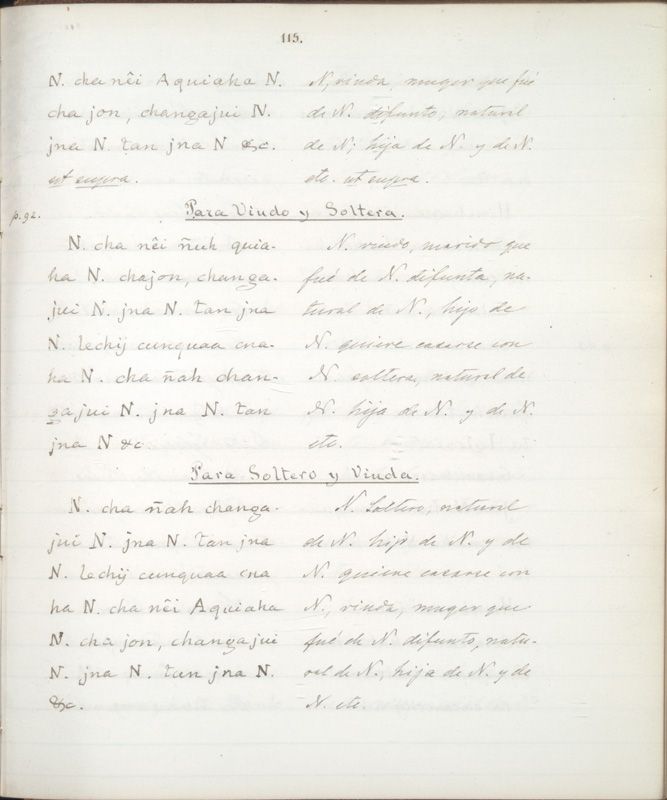 115.
N. cha nêi Aquiaha N. N, viuda, muger que fué
cha jon, changajui N. de N. difunto, natural
jna N. tan jna N &c. de N; hija de N. y de N.
ut supra. etc. ut supra.
p. 92. Para Viudo y Soltera.
N. cha nêi ñuh quia- N. viudo, marido que
ha N. chajon, changa- fué de N. difunta, na-
jui N. jna N. tan jna tural de N., hijo de
N. lechij cunquaa cna- N. quiere casarse con
ha N. cha ñah chan- N. soltera, natural de
gajui N. jna N. tan N. hija de N. y de N.
jna N &c. etc.
Para Soltero y Viuda.
N. cha ñah changa- N. Soltero, natural
jui N. jna N. tan jna de N. hijo de N. y de
N. lechij cunquaa cna N. quiere casarse con
ha N. cha nêi Aquiaha N., viuda, muger que
N. cha jon, changajui fué de N. difunto, natu-
N. jna N. tan jna N. ral de N., hija de N. y de
&c. N. etc.